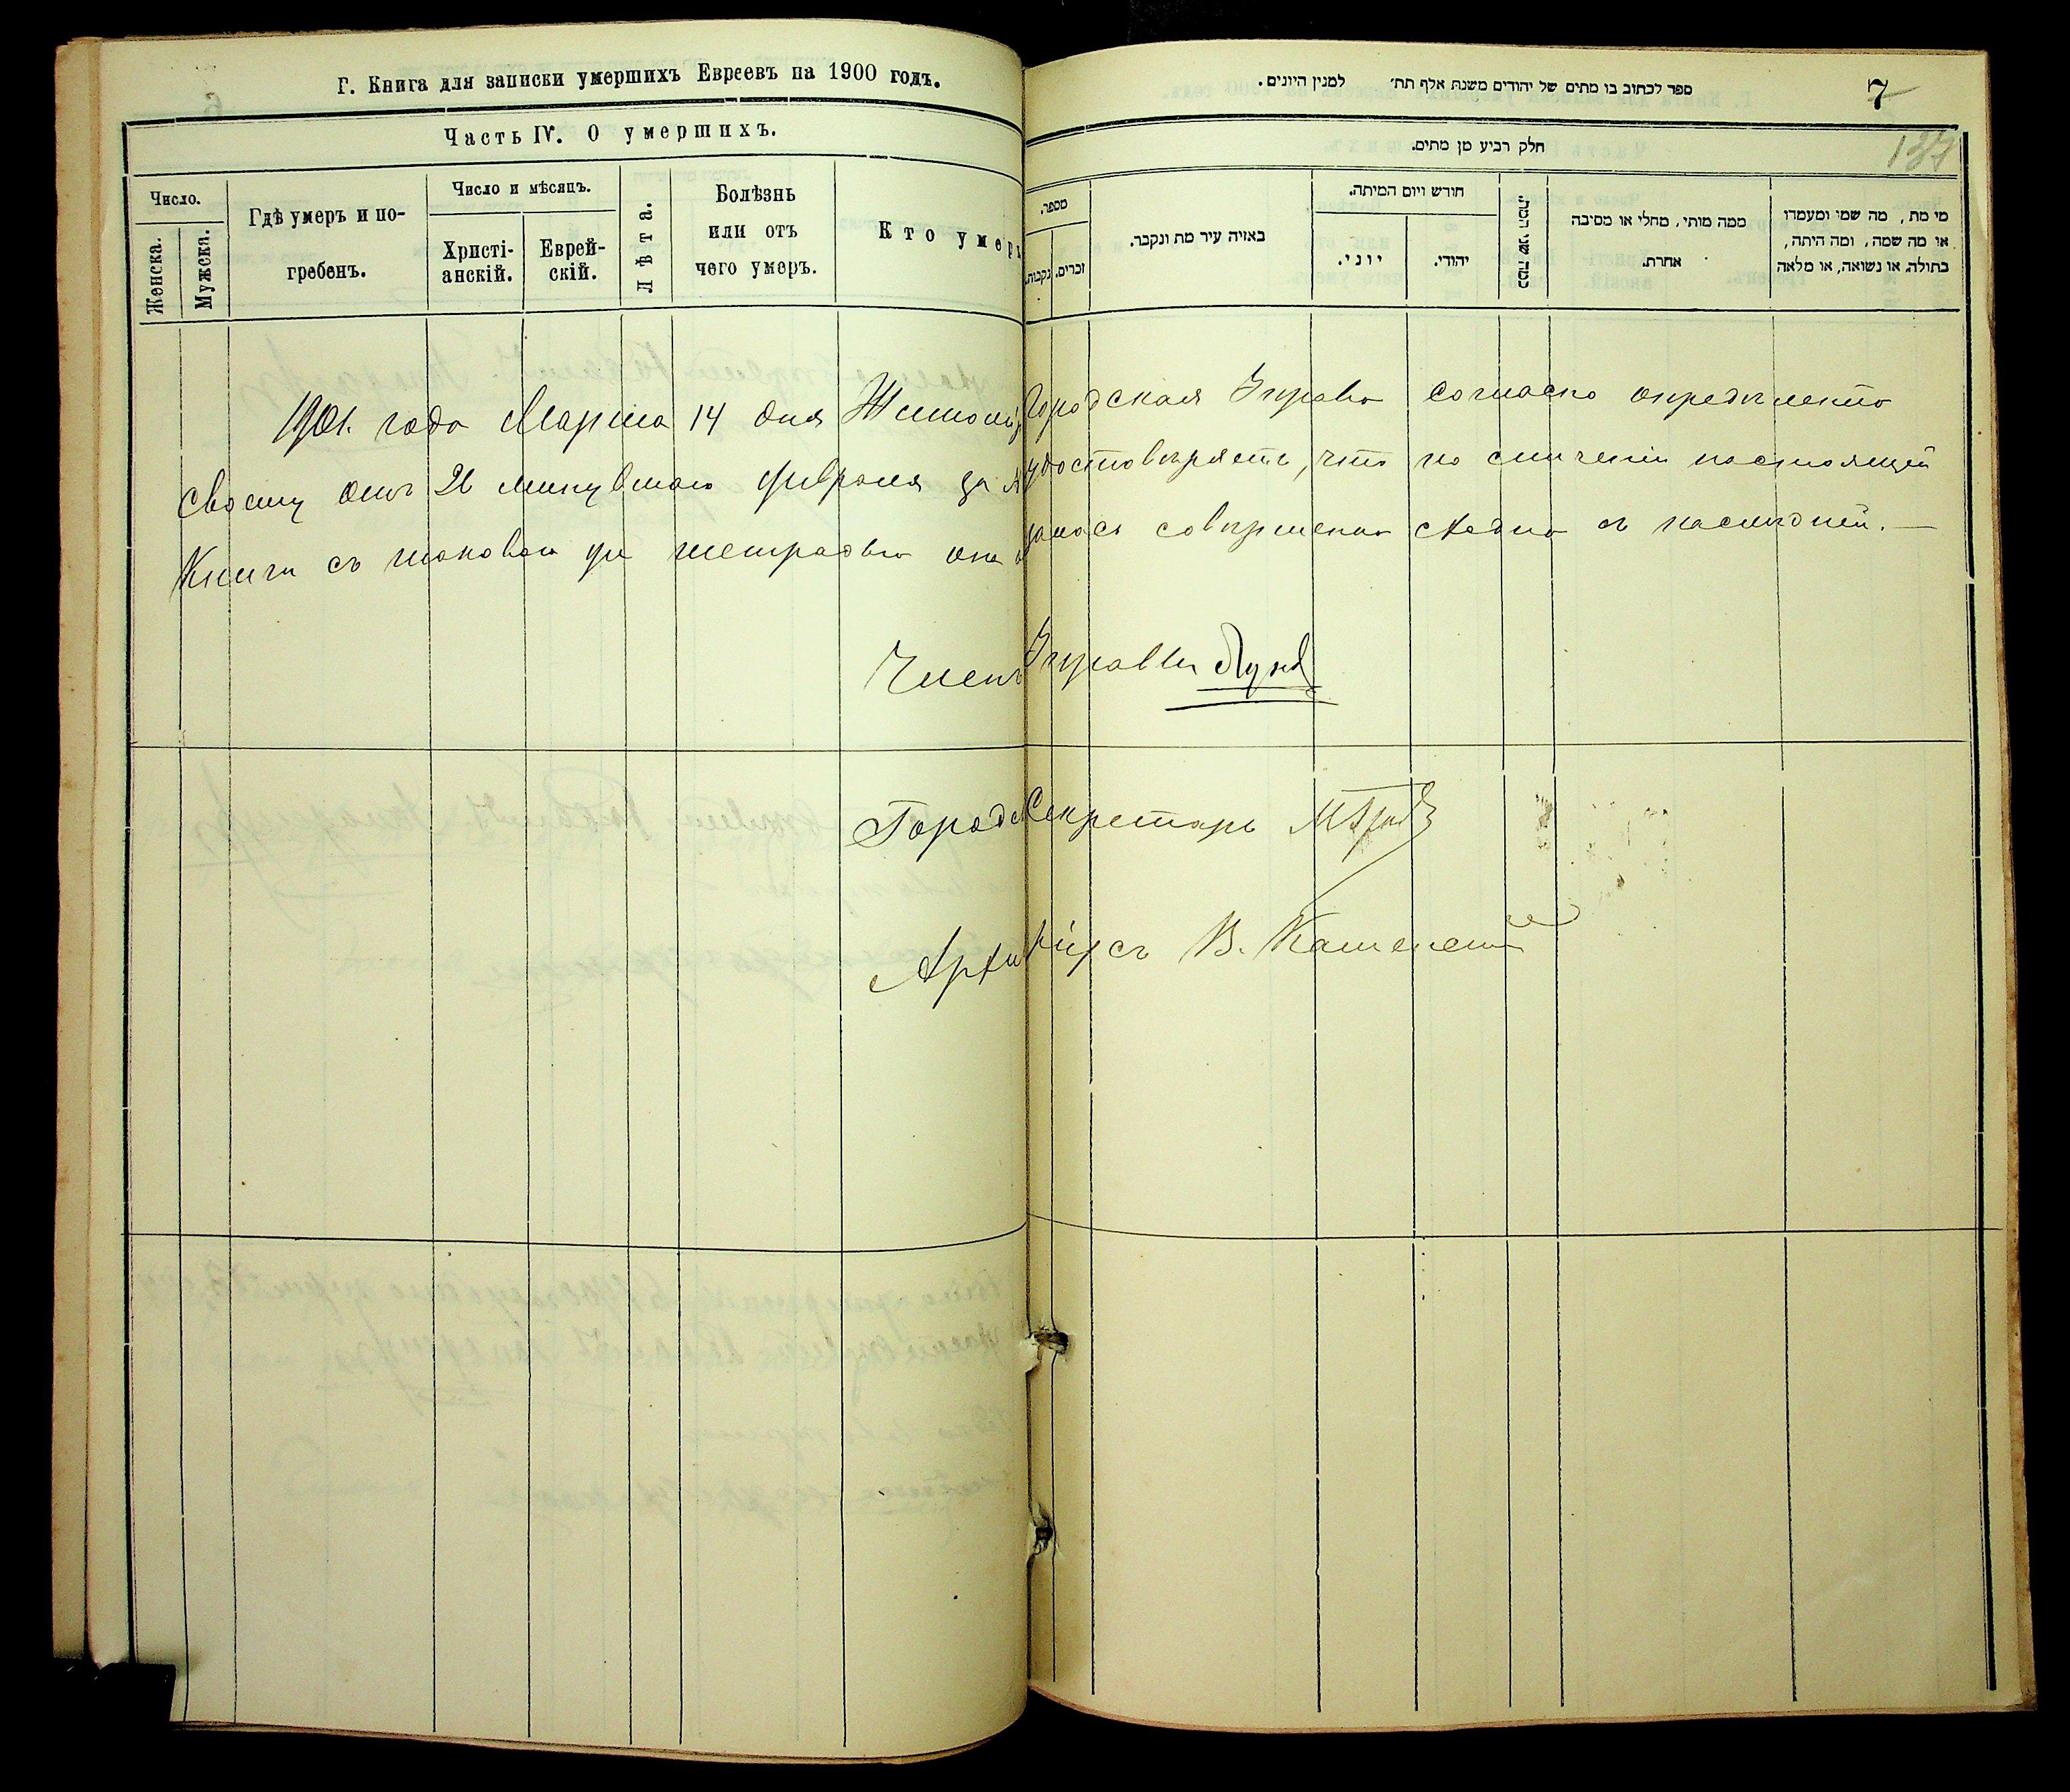 Г. Книга для записки умершихъ Евреевъ на 1900 годъ.
Часть IV. О умершихъ.
Число.
Женска.
Мужска.
Гдѣ умеръ и по-
гребенъ.
Число и мѣсяцъ.
Христі-
анскій.
Еврей-
скій.
Лѣта.
Болѣзнь
или отъ
чего умеръ.
Кто умеръ
ספר לכתוב בו מתים של יהודים משנת אלף תת׳ למנין היונים.
7
137
חלק רביע מן מתים.
מספר.
נקבות.
זכרים.
באיזה עיר מת ונקבר.
חודש ויום המיתה.
יוני.
יהודי.
כמה שני המת.
ממה מותי, מחלי או מסיבה
אחרת.
מי מת, מה שמו ומעמדו
או מה שמה, ומה היתה,
בתולה. או נשואה, או מלאה
1901. года Марта 14 дня Житомір Городская Управа согласно опредѣленію
своему отъ 26 минувшаго февраля за № удостовѣряетъ, что по сличеніи настоящей
Книги съ таковою же тетрадью она залась совершенно сходно съ послѣдней. —
Членъ Управы
Городс Секретарь
Архиваріусъ В. Каменец